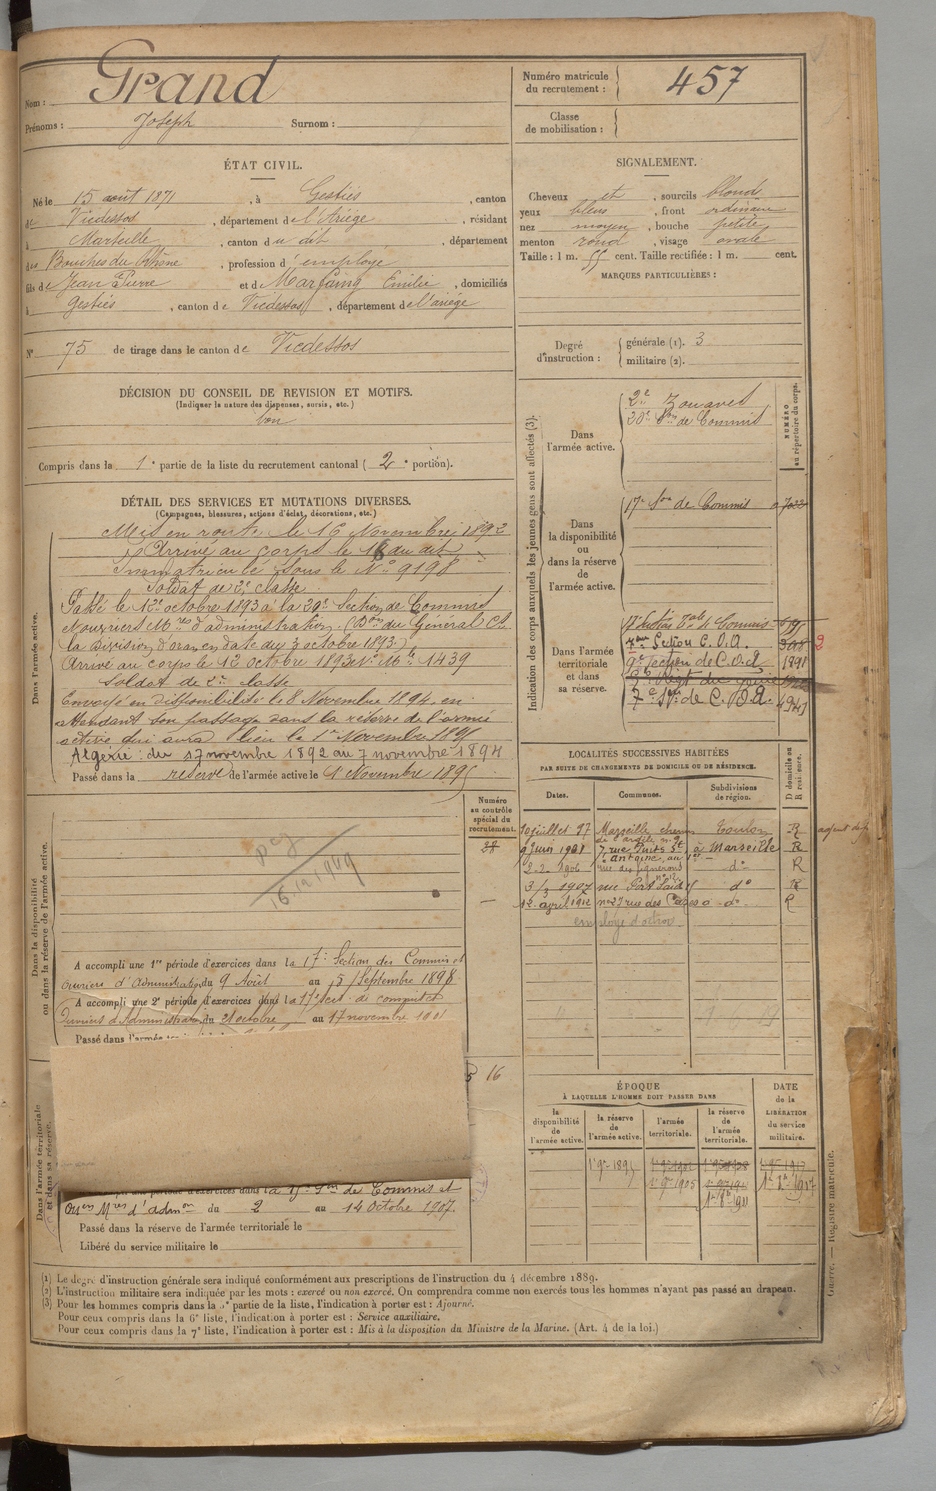 Nom : Grand
Prénoms : Joseph Surnom :
Numéro matricule du recrutement : 457
Classe de mobilisation :
ÉTAT CIVIL.
Né le 15 août 1871, à Gestiès, canton
de Vicdessos, département de l'Ariège, résidant
à Marseille, canton du dit, département
des Bouches du Rhône, profession d'employé
fils de Jean Pierre et de Marfaing Emilie, domiciliés
à Gestiès, canton de Vicdessos, département de l'ariège
N° 75 de tirage dans le canton de Vicdessos
SIGNALEMENT.
Cheveux et, sourcils blond
yeux bleus, front ordinaire
nez moyen, bouche petite
menton rond, visage ovale
Taille : 1 m. 55 cent. Taille rectifiée : 1 m. cent.
MARQUES PARTICULIÈRES :
Degré d'instruction :
générale (1). 3
militaire (2).
DÉCISION DU CONSEIL DE REVISION ET MOTIFS.
(Indiquer la nature des dispenses, sursis, etc.)
bon
Compris dans la 1e partie de la liste du recrutement cantonal (2e portion).
DÉTAIL DES SERVICES ET MUTATIONS DIVERSES.
(Campagnes, blessures, actions d'éclat, décorations, etc.)
Dans l'armée active.
Mis en route le 16 Novembre 1892
Arrivé au corps le 18 du dit
Immatriculé sous le N° 9198
Soldat de 2e classe
Passé le 12 octobre 1893 à la 20e Section de Commis
et ouvriers Mres d'administration (Don du Général Ct
la Division d'oran en date du 3 octobre 1893)
Arrivé au corps le 12 octobre 1893 N° Mle 1439
Soldat de 2e classe
Envoyé en disponibilité le 8 Novembre 1894, en
attendant son passage dans la réserve de l'armée
active qui aura lieu le 1er Novembre 1895
Algérie : du 17 novembre 1892 au 7 novembre 1894
Passé dans la réserve de l'armée active le 1 Novembre 1895
Indication des corps auxquels les jeunes gens sont affectés (3).
NUMÉRO au répertoire du corps.
Dans l'armée active.
2e Zouaves
20e Son de Commis
Dans la disponibilité ou dans la réserve de l'armée active.
17e Son de Commis
Dans l'armée territoriale et dans sa réserve.
Section de Commis
7eme Section C.O.A. 2
9e Section de C.O.A 1891
7e Son de C.O.A.
LOCALITÉS SUCCESSIVES HABITÉES
PAR SUITE DE CHANGEMENTS DE DOMICILE OU DE RÉSIDENCE.
Dates. Communes. Subdivisions de région. D domicile ou R résidence.
10 juillet 97 Marseille Toulon R
9 juin 1901 7 rue Puits St antoine à Marseille R
2-2 1906 do R
3/3 1907 rue Port Saïd do R
1er avril 1912 do R
employé d'octroi
Dans la disponibilité ou dans la réserve de l'armée active.
Numéro au contrôle spécial du recrutement.
16 12 1949
A accompli une 1re période d'exercices dans la 17e Section des Commis et
ouvriers d'Administration du 9 Août au 5 Septembre 1898
A accompli une 2e période d'exercices dans la 17e
Ouvriers d'Administration du 21 octobre au 17 novembre 1901
Passé dans l'armée
16
Dans l'armée territoriale et dans sa réserve.
période d'exercices dans la de Commis et
Mres d'admon du 2 au 14 Octobre 1907.
Passé dans la réserve de l'armée territoriale le
Libéré du service militaire le
ÉPOQUE
À LAQUELLE L'HOMME DOIT PASSER DANS
la disponibilité de l'armée active.
la réserve de l'armée active.
l'armée territoriale.
la réserve de l'armée territoriale.
DATE de la LIBÉRATION du service militaire.
1er 9bre 1895
Guerre. — Registre matricule.
(1) Le degré d'instruction générale sera indiqué conformément aux prescriptions de l'instruction du 4 décembre 1889.
(2) L'instruction militaire sera indiquée par les mots : exercé ou non exercé. On comprendra comme non exercés tous les hommes n'ayant pas passé au drapeau.
(3) Pour les hommes compris dans la 5e partie de la liste, l'indication à porter est : Ajourné.
Pour ceux compris dans la 6e liste, l'indication à porter est : Service auxiliaire.
Pour ceux compris dans la 7e liste, l'indication à porter est : Mis à la disposition du Ministre de la Marine. (Art. 4 de la loi.)